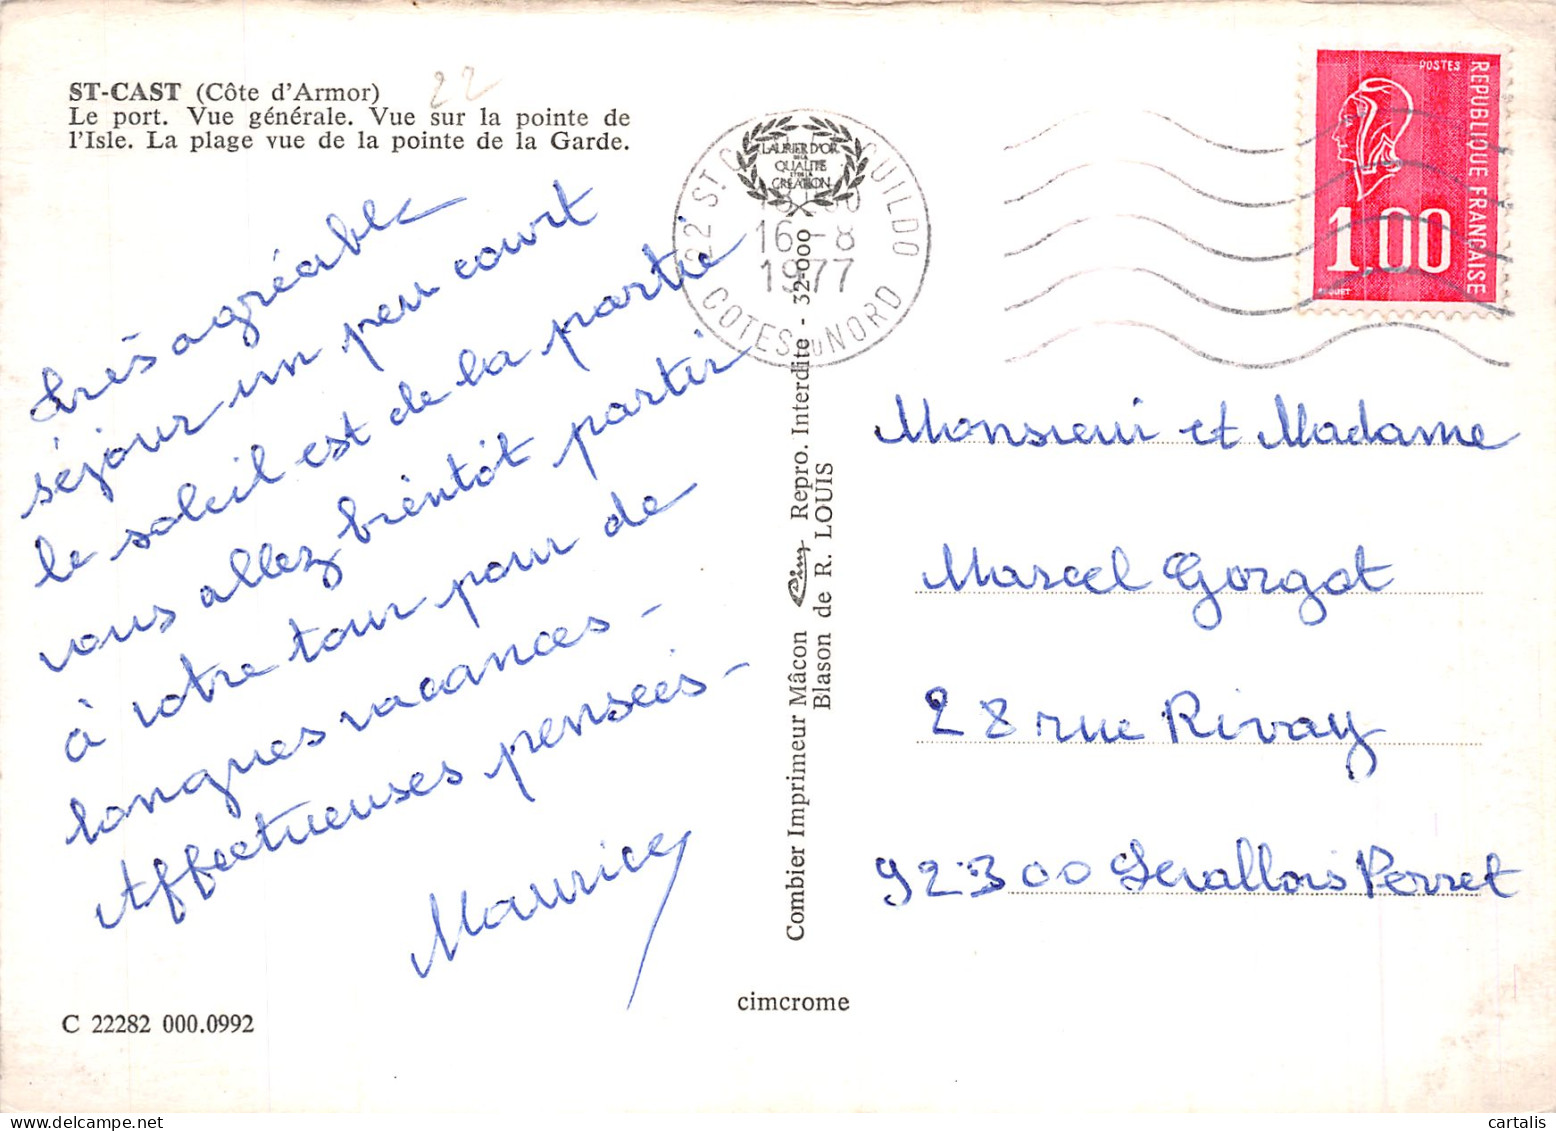 ST-CAST (Côte d'Armor)
22
Le port. Vue générale. Vue sur la pointe de
l'Isle. La plage vue de la pointe de la Garde.
très agréable
séjour un peu court
le soleil est de la partie
vous allez bientôt partir
à votre tour pour de
longues vacances -
Affectueuses pensées -
Maurice
C 22282 000.0992
LAURIER D'OR
DE LA
QUALITE
ET DE LA
CREATION
22 ST C GUILDO
16-8
1977
COTES DU NORD
Combier Imprimeur Mâcon Cim Repro. Interdite - 32-000
Blason de R. LOUIS
cimcrome
POSTES
REPUBLIQUE FRANÇAISE
1.00
BEQUET
Monsieur et Madame
Marcel Gorgot
28 rue Rivay
92300 Levallois Perret
cartalis